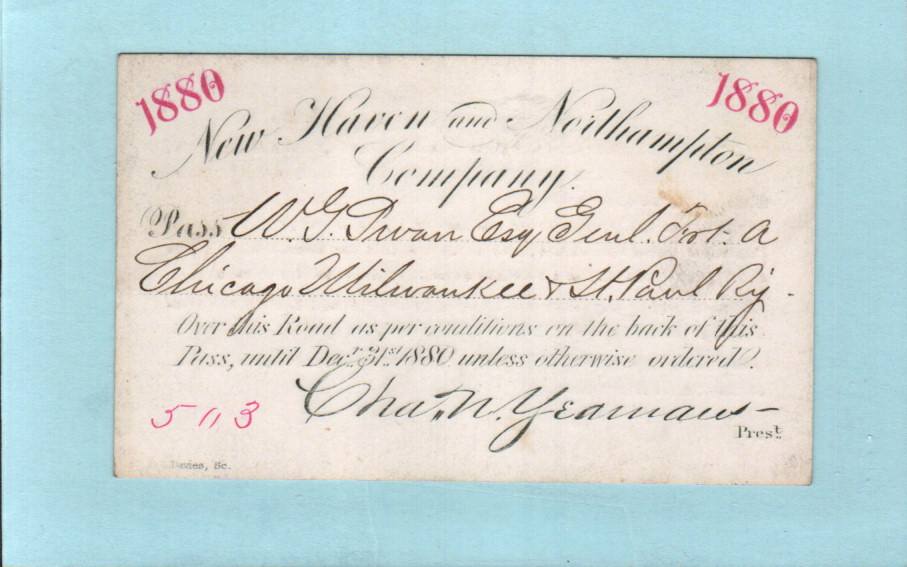 1880 1880
New Haven and Northampton
Company.
Pass W. G. Swan Esq Genl. Frt. A
Chicago Milwaukee & St. Paul Ry.
Over this Road as per conditions on the back of this
Pass, until Decr. 31st. 1880 unless otherwise ordered.
Chas. N. Yeamans
Prest.
5113